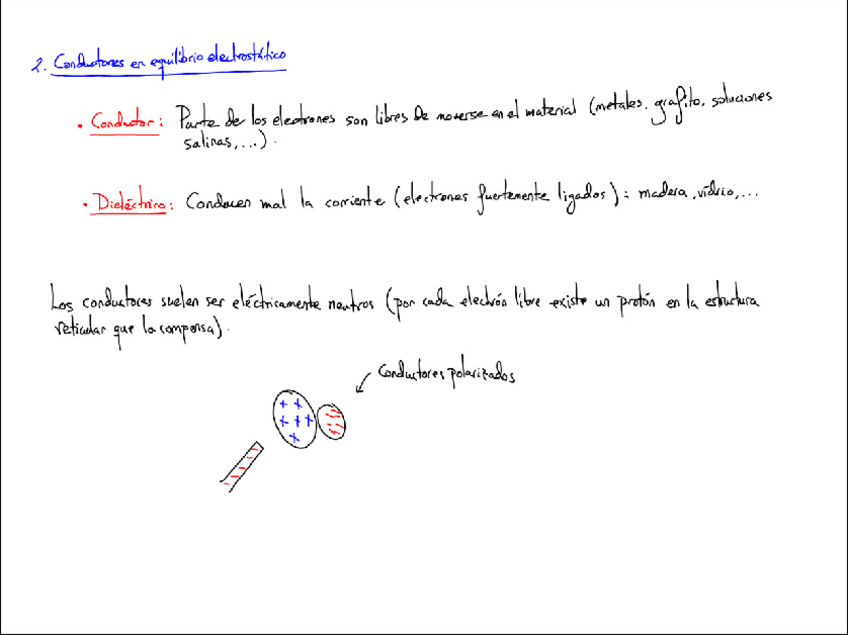 2. Conductores en equilibrio electrostático
• Conductor: Parte de los electrones son libres de moverse en el material (metales, grafito, soluciones
salinas,...).
• Dieléctrico: Conducen mal la corriente (electrones fuertemente ligados): madera, vidrio,...
Los conductores suelen ser eléctricamente neutros (por cada electrón libre existe un protón en la estructura
reticular que lo compensa).
Conductores polarizados
+ +
+ + +
+